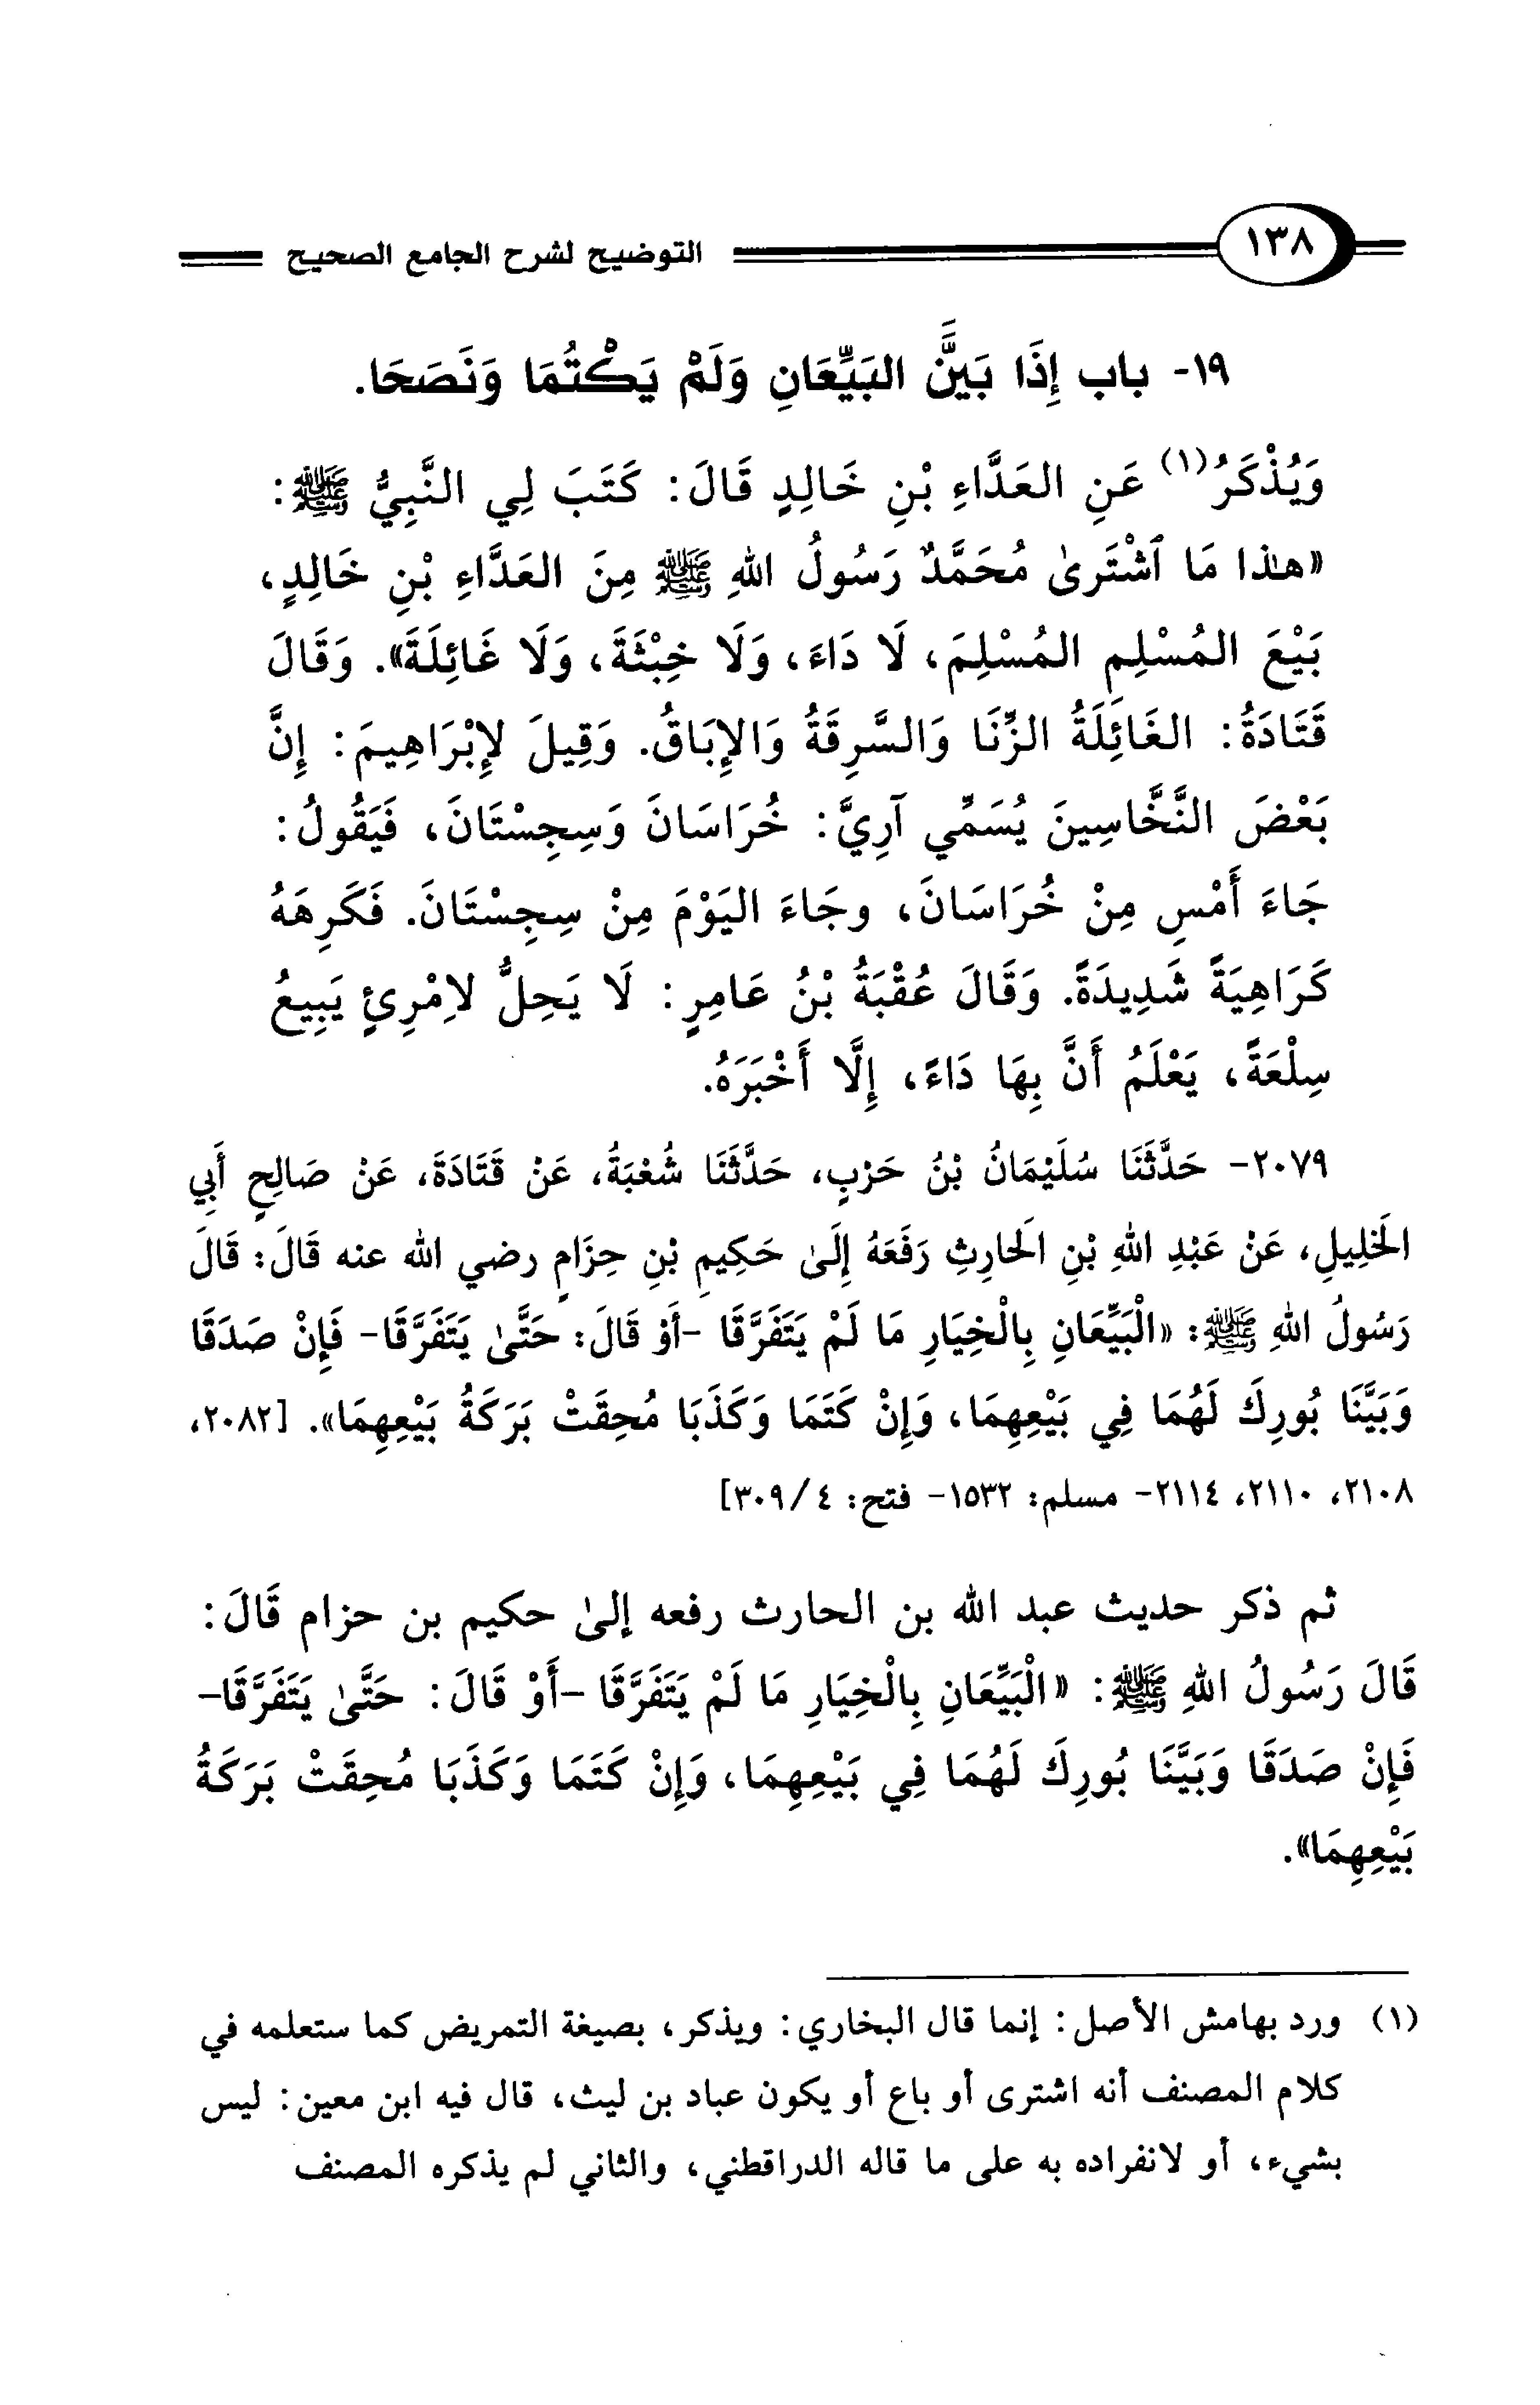 ١٣٨ التوضيح لشرح الجامع الصحيح
١٩- باب إِذَا بَيَّنَ البَيِّعَانِ وَلَمْ يَكْتُمَا وَنَصَحَا.
وَيُذْكَرُ(١) عَنِ العَدَّاءِ بْنِ خَالِدٍ قَالَ: كَتَبَ لِي النَّبِيُّ ﷺ:
«هٰذا مَا ٱشْتَرىٰ مُحَمَّدٌ رَسُولُ اللهِ ﷺ مِنَ العَدَّاءِ بْنِ خَالِدٍ،
بَيْعَ المُسْلِمِ المُسْلِمَ، لَا دَاءَ، وَلَا خِبْثَةَ، وَلَا غَائِلَةَ». وَقَالَ
قَتَادَةُ: الغَائِلَةُ الزِّنَا وَالسَّرِقَةُ وَالإِبَاقُ. وَقِيلَ لإِبْرَاهِيمَ: إِنَّ
بَعْضَ النَّخَّاسِينَ يُسَمِّي آرِيَّ: خُرَاسَانَ وَسِجِسْتَانَ، فَيَقُولُ:
جَاءَ أَمْسِ مِنْ خُرَاسَانَ، وجَاءَ اليَوْمَ مِنْ سِجِسْتَانَ. فَكَرِهَهُ
كَرَاهِيَةً شَدِيدَةً. وَقَالَ عُقْبَةُ بْنُ عَامِرٍ: لَا يَحِلُّ لاِمْرِئٍ يَبِيعُ
سِلْعَةً، يَعْلَمُ أَنَّ بِهَا دَاءً، إِلَّا أَخْبَرَهُ.
٢٠٧٩- حَدَّثَنَا سُلَيْمَانُ بْنُ حَرْبٍ، حَدَّثَنَا شُعْبَةُ، عَنْ قَتَادَةَ، عَنْ صَالِحٍ أَبِي
الَخلِيلِ، عَنْ عَبْدِ اللهِ بْنِ الَحارِثِ رَفَعَهُ إِلَىٰ حَكِيمِ بْنِ حِزَامٍ رضي الله عنه قَالَ: قَالَ
رَسُولُ اللهِ ﷺ: «الْبَيِّعَانِ بِالْخِيَارِ مَا لَمْ يَتَفَرَّقَا -أَوْ قَالَ: حَتَّىٰ يَتَفَرَّقَا- فَإِنْ صَدَقَا
وَبَيَّنَا بُورِكَ لَهُمَا فِي بَيْعِهِمَا، وَإِنْ كَتَمَا وَكَذَبَا مُحِقَتْ بَرَكَةُ بَيْعِهِمَا». [٢٠٨٢،
٢١٠٨، ٢١١٠، ٢١١٤- مسلم: ١٥٣٢- فتح: ٤/ ٣٠٩]
ثم ذكر حديث عبد الله بن الحارث رفعه إلىٰ حكيم بن حزام قَالَ:
قَالَ رَسُولُ اللهِ ﷺ: «الْبَيِّعَانِ بِالْخِيَارِ مَا لَمْ يَتَفَرَّقَا -أَوْ قَالَ: حَتَّىٰ يَتَفَرَّقَا-
فَإِنْ صَدَقَا وَبَيَّنَا بُورِكَ لَهُمَا فِي بَيْعِهِمَا، وَإِنْ كَتَمَا وَكَذَبَا مُحِقَتْ بَرَكَةُ
بَيْعِهِمَا».
(١) ورد بهامش الأصل: إنما قال البخاري: ويذكر، بصيغة التمريض كما ستعلمه في
كلام المصنف أنه اشترى أو باع أو يكون عباد بن ليث، قال فيه ابن معين: ليس
بشيء، أو لانفراده به على ما قاله الدراقطني، والثاني لم يذكره المصنف